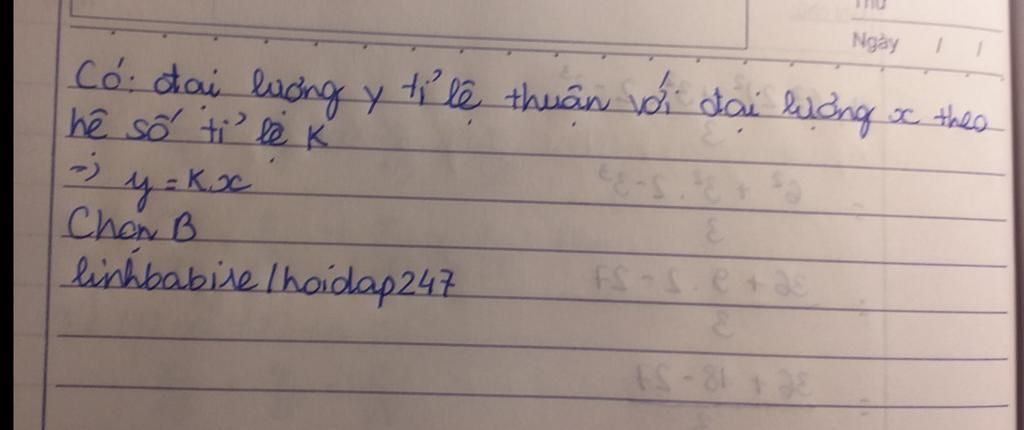 Thứ
Ngày / /
Có: đại lượng y tỉ lệ thuận với đại lượng x theo
hệ số tỉ lệ K
=> y = K.x
Chọn B
linhbabire/hoidap247